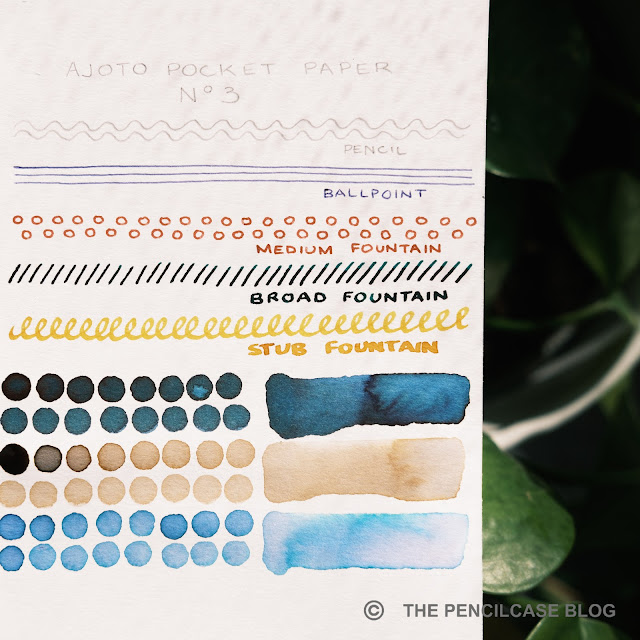 AJOTO POCKET PAPER
Nº3
PENCIL
BALLPOINT
MEDIUM FOUNTAIN
BROAD FOUNTAIN
STUB FOUNTAIN
© THE PENCILCASE BLOG